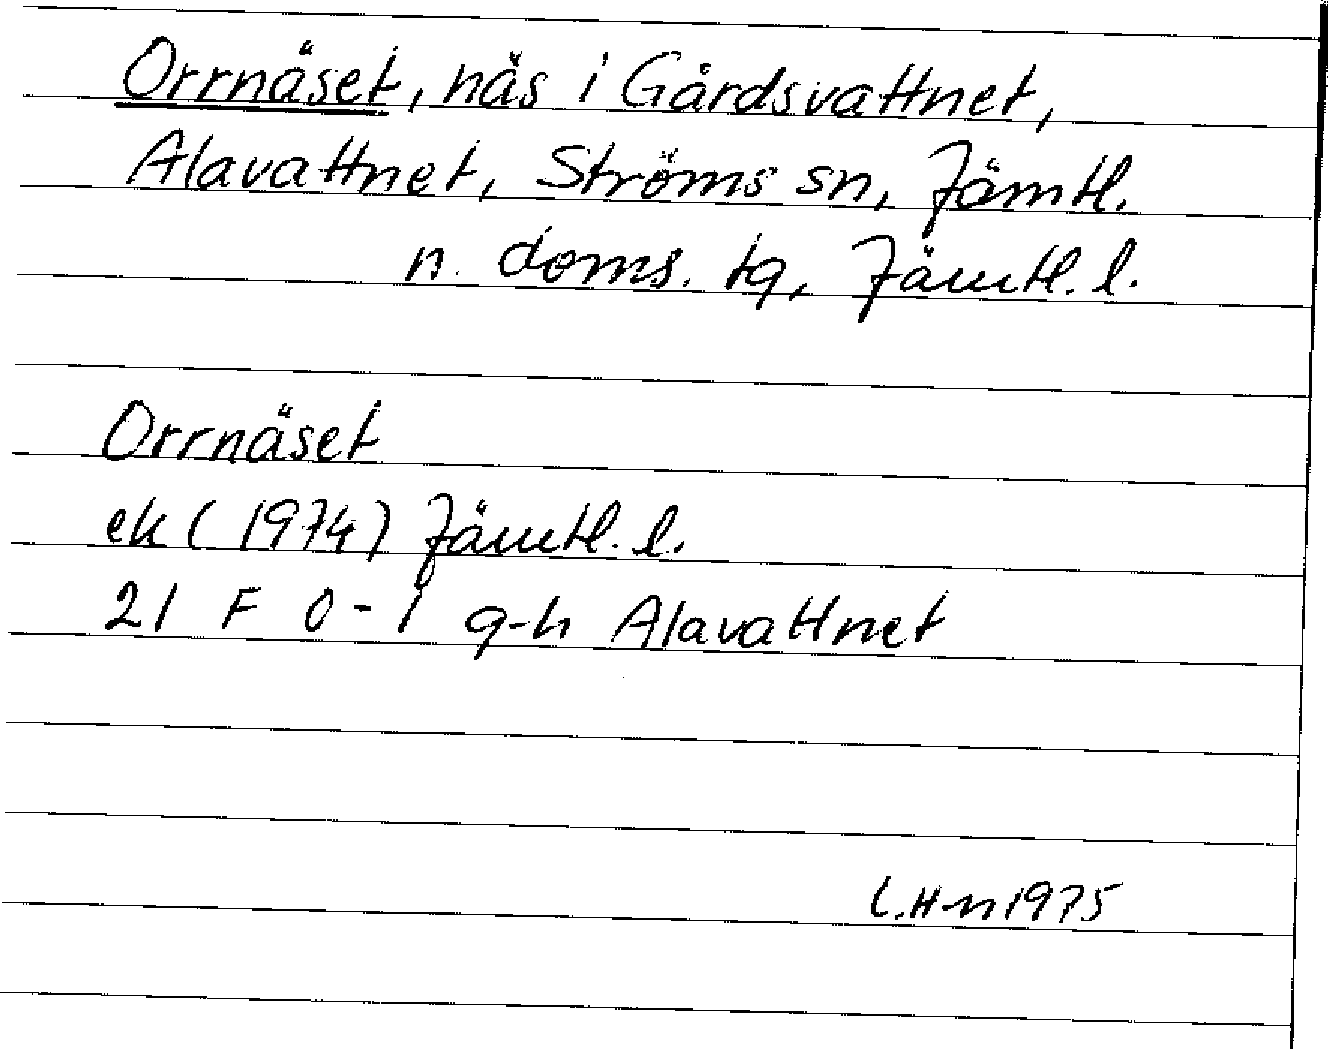 Orrnäset, näs i Gårdsvattnet,
Alavattnet, Ströms sn, Jämtl.
n. doms. tg, Jämtl. l.
Orrnäset
ek (1974) Jämtl. l.
21 F 0-1 g-h Alavattnet
L.H-n 1975